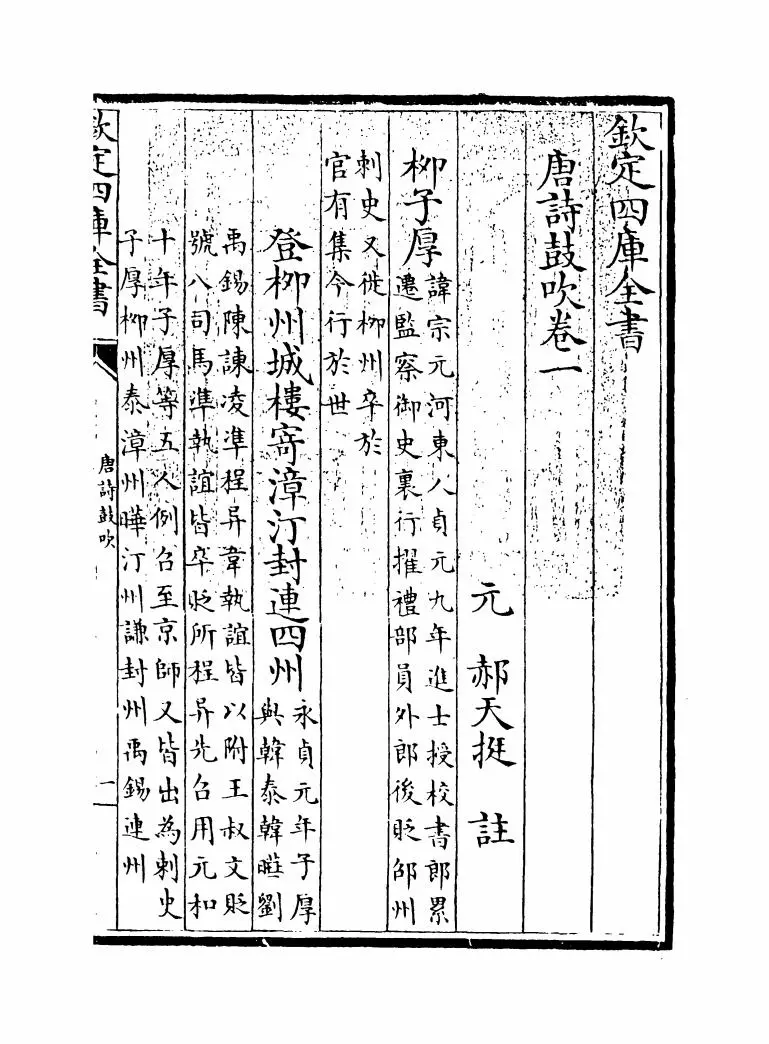 欽定四庫全書
唐詩鼓吹卷一
元　郝天挺　註
柳子厚
諱宗元河東人貞元九年進士授校書郎累
遷監察御史裏行擢禮部員外郎後貶邵州
刺史又徙柳州卒於
官有集今行於世
登柳州城樓寄漳汀封連四州
永貞元年子厚
與韓泰韓曄劉
禹錫陳諫凌準程异韋執誼皆以附王叔文貶
號八司馬準執誼皆卒貶所程异先召用元和
十年子厚等五人例召至京師又皆出為刺史
子厚柳州泰漳州曄汀州謙封州禹錫連州
欽定四庫全書
唐詩鼓吹
一